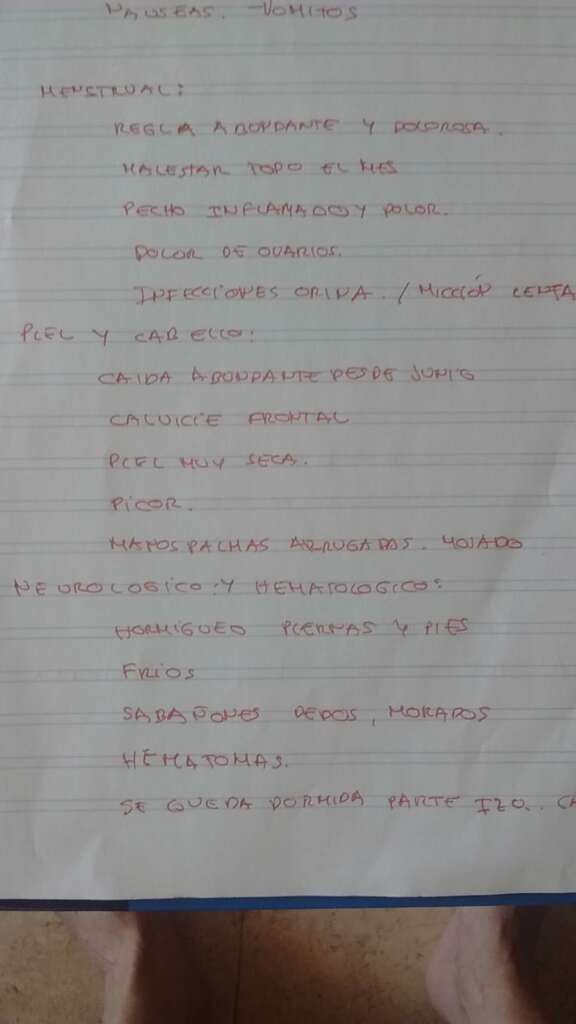 NAUSEAS. VOMITOS
MENSTRUAL:
REGLA ABUNDANTE Y DOLOROSA.
MALESTAR TODO EL MES
PECHO INFLAMADO Y DOLOR.
DOLOR DE OVARIOS.
INFECCIONES ORINA. / MICCIÓN LENTA
PIEL Y CABELLO:
CAIDA ABUNDANTE DESDE JUNIO
CALVICIE FRONTAL
PIEL MUY SECA.
PICOR.
MANOS PALMAS ARRUGADAS. MOJADO
NEUROLOGICO: Y HEMATOLOGICO:
HORMIGUEO PIERNAS Y PIES
FRIOS
SABAÑONES DEDOS, MORADOS
HEMATOMAS.
SE QUEDA DORMIDA PARTE IZQ.